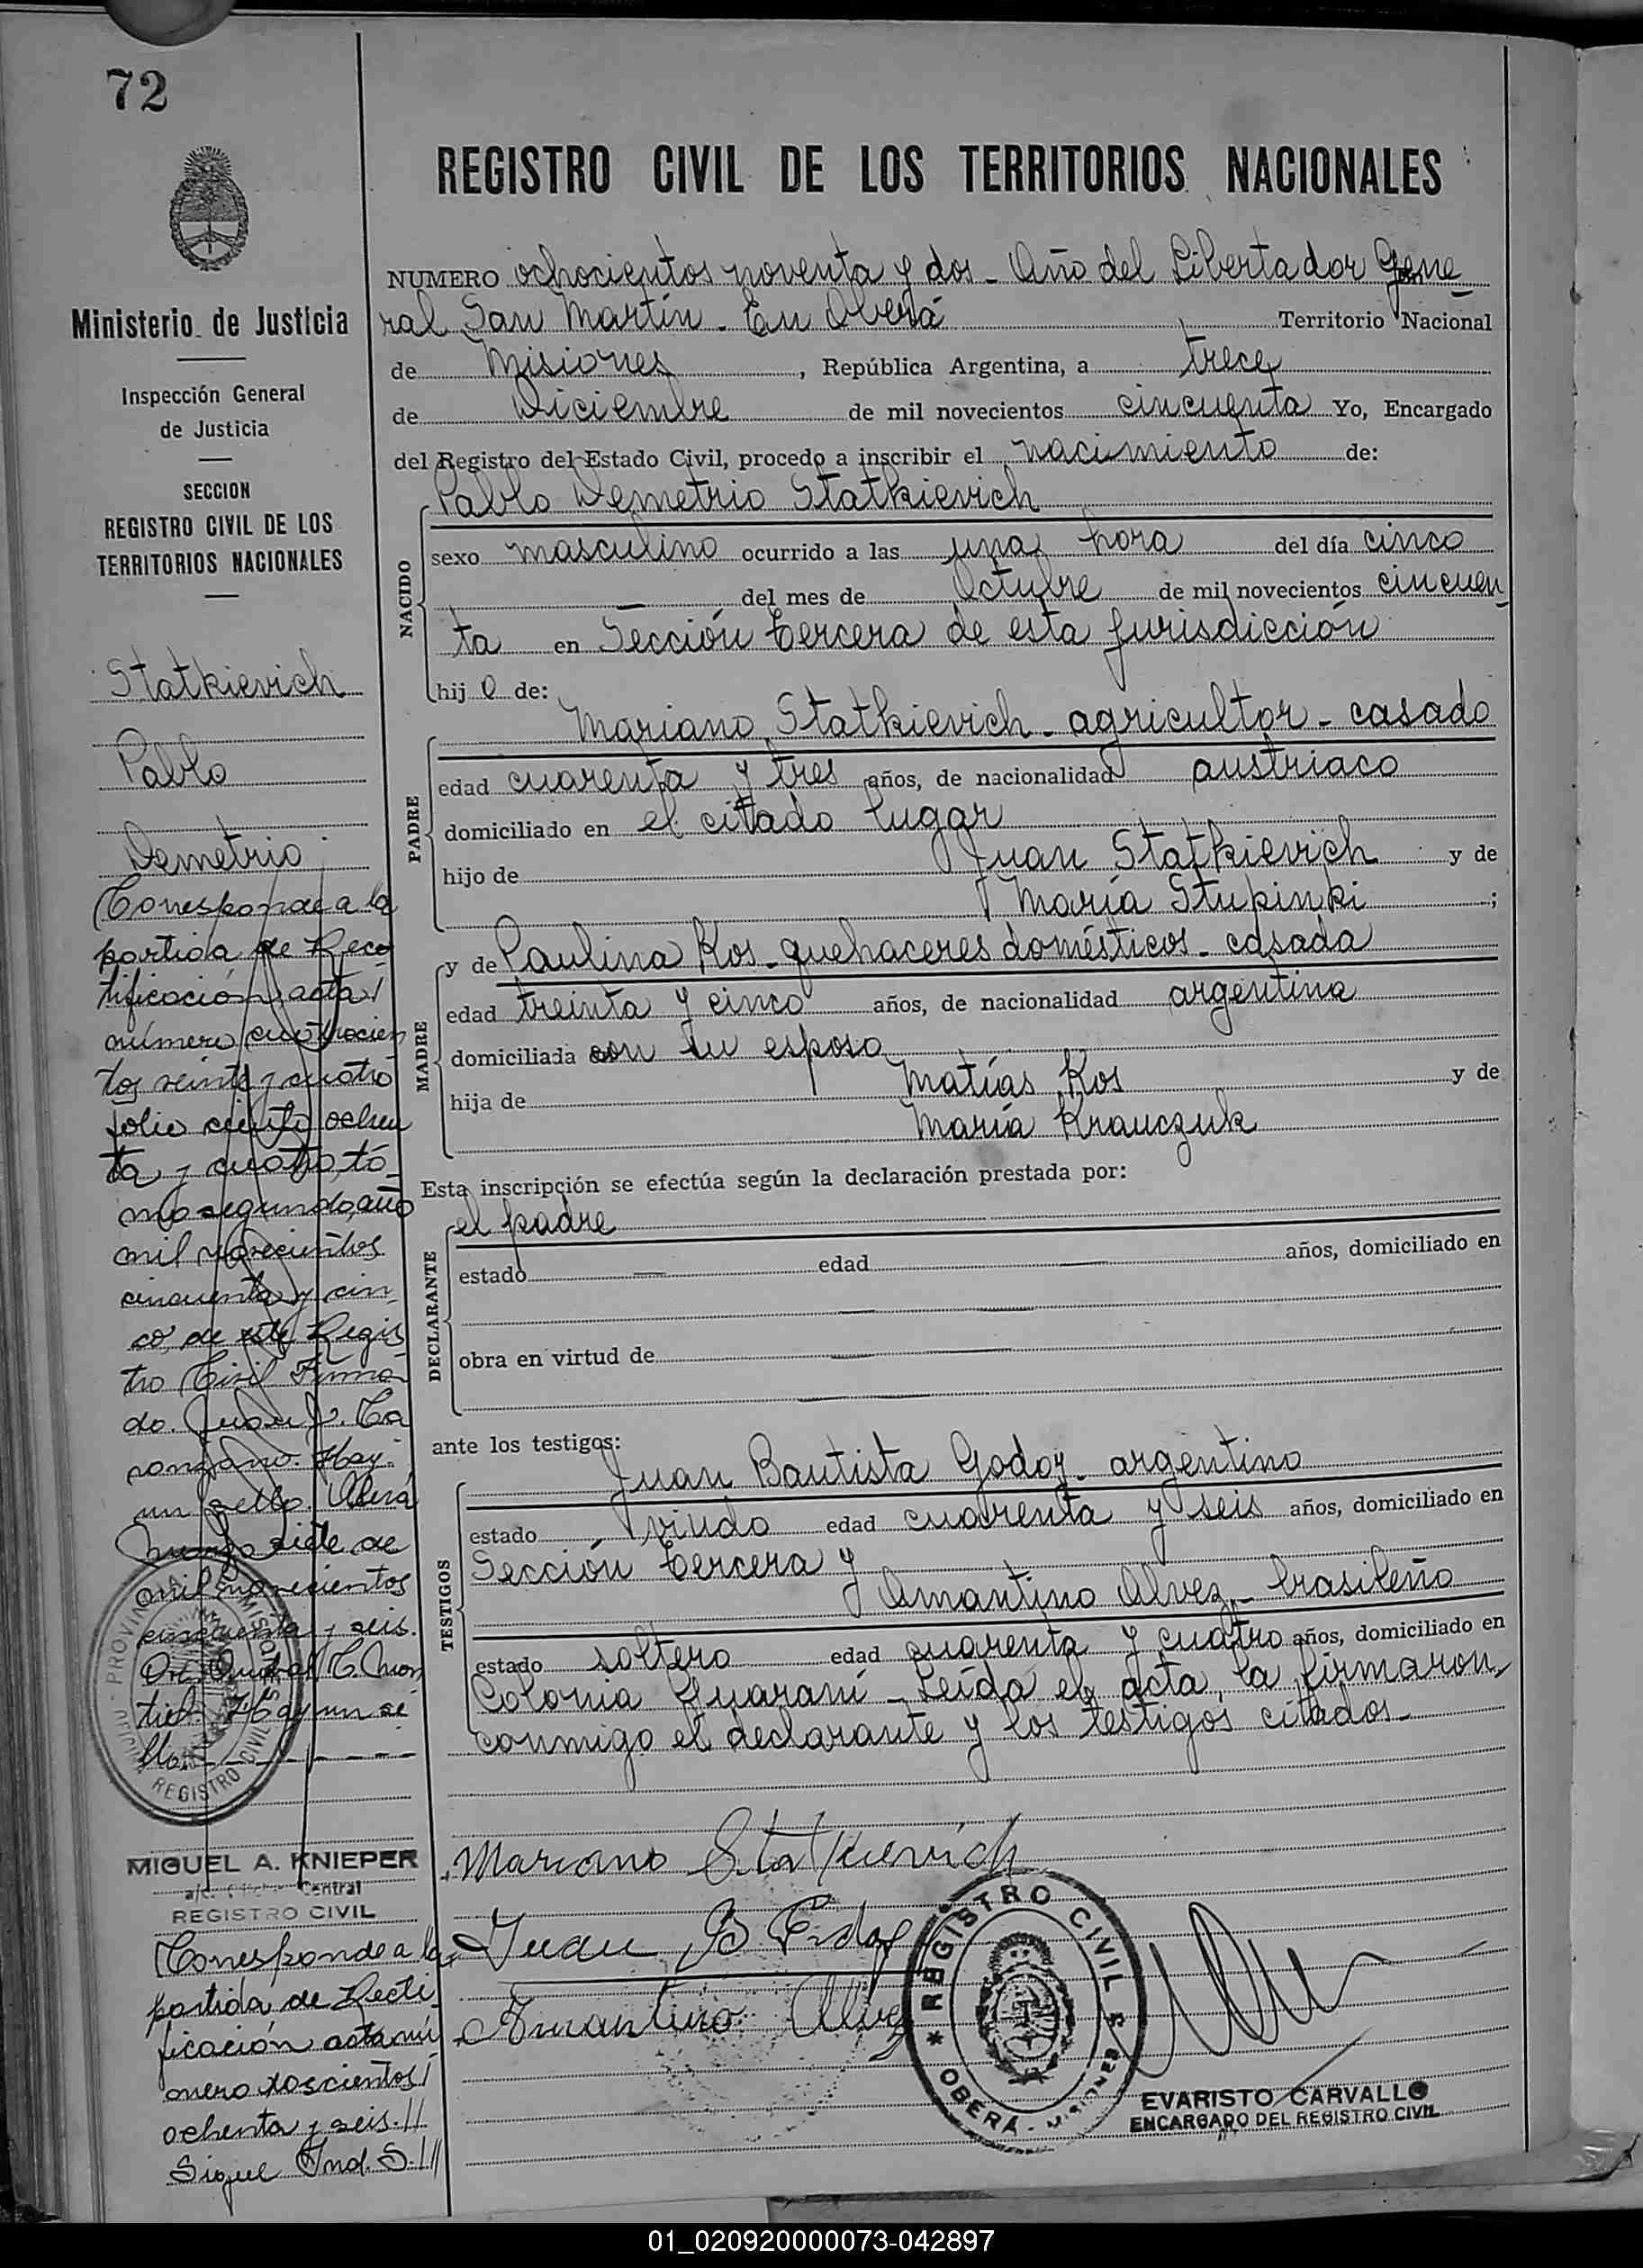 72
REGISTRO CIVIL DE LOS TERRITORIOS NACIONALES
Ministerio de Justicia
Inspección General
de Justicia
SECCION
REGISTRO CIVIL DE LOS
TERRITORIOS NACIONALES
Statkievich
Pablo
Demetrio
Corresponde a la
partida de Reco
tificación acta
número cuatrocien
tos veinte y cuatro
folio ciento ochen
ta y cuatro, to
mo segundo, año
mil novecientos
cincuenta y cin
co, de este Regis
tro Civil Firma
do. Juan J. Ca
Hay
un sello. Oberá
Marzo siete de
mil novecientos
cincuenta y seis.
Hay un se
llo.
PROVINCIA DE MISIONES
REGISTRO CIVIL
MIGUEL A. KNIEPER
Central
REGISTRO CIVIL
Corresponde a la
partida de Recti
ficación acta nú
mero doscientos
ochenta y seis.//
Sigue Ind. S.///
NUMERO ochocientos noventa y dos - Año del Libertador Gene
ral San Martín - En Oberá Territorio Nacional
de Misiones, República Argentina, a trece
de Diciembre de mil novecientos cincuenta Yo, Encargado
del Registro del Estado Civil, procedo a inscribir el nacimiento de:
Pablo Demetrio Statkievich
NACIDO
sexo masculino ocurrido a las una hora del día cinco
— del mes de Octubre de mil novecientos cincuen
ta en Sección tercera de esta jurisdicción
hij o de:
Mariano Statkievich - agricultor - casado
PADRE
edad cuarenta y tres años, de nacionalidad austriaco
domiciliado en el citado lugar
hijo de Juan Statkievich y de
María Stupinki ;
y de Paulina Kos - quehaceres domésticos - casada
MADRE
edad treinta y cinco años, de nacionalidad argentina
domiciliada con su esposo
hija de Matías Kos y de
María Krauczuk
Esta inscripción se efectúa según la declaración prestada por:
el padre
DECLARANTE
estado — edad — años, domiciliado en
obra en virtud de
ante los testigos:
Juan Bautista Godoy - argentino
TESTIGOS
estado viudo edad cuarenta y seis años, domiciliado en
Sección tercera y
Amantino Alvez - brasileño
estado soltero edad cuarenta y cuatro años, domiciliado en
Colonia Guaraní - Leída el acta, la firmaron
conmigo el declarante y los testigos citados -
Mariano Statkievich
Juan B Godoy
Amantino Alvez
REGISTRO CIVIL 5
OBERÁ - MISIONES
EVARISTO CARVALLO
ENCARGADO DEL REGISTRO CIVIL
01_020920000073-042897